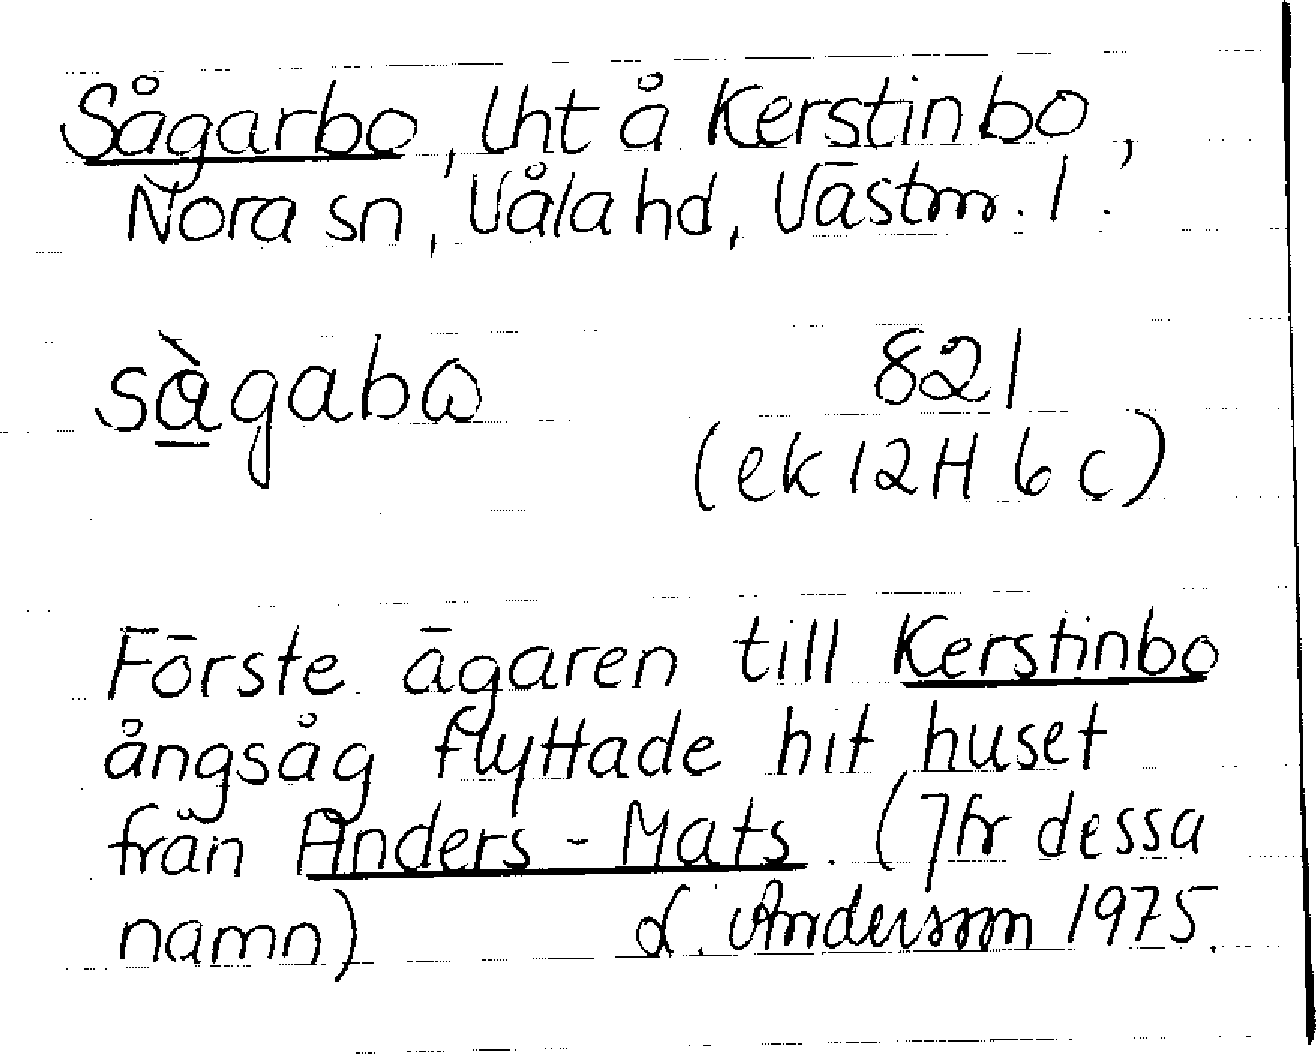 Sågarbo, lht å Kerstinbo,
Nora sn, Våla hd, Västm. l.
sàgabɷ 821
(ek 12H 6 c)
Förste ägaren till Kerstinbo
ångsåg flyttade hit huset
från Anders-Mats. (Jfr dessa
namn) L. Anderson 1975.